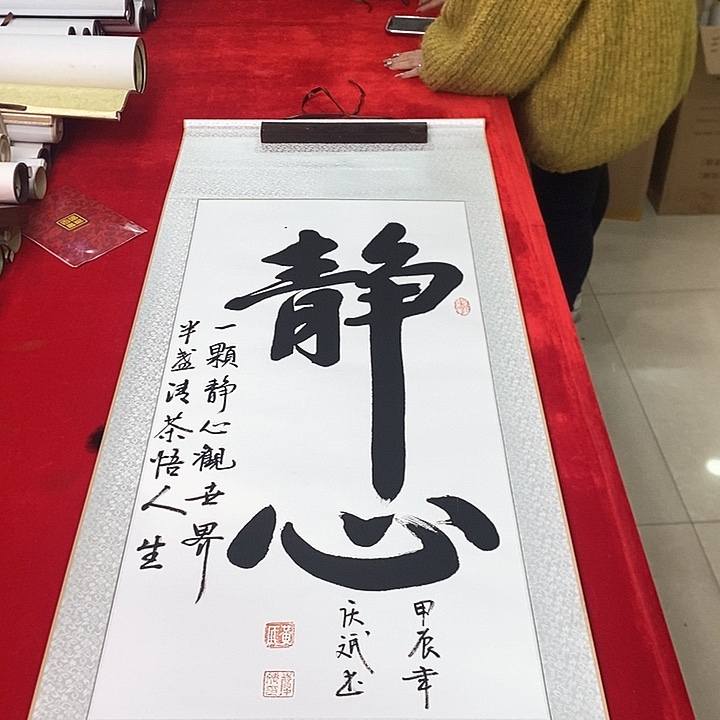 静心
一顆静心觀世界
半盏清茶悟人生
甲辰年
庆斌书